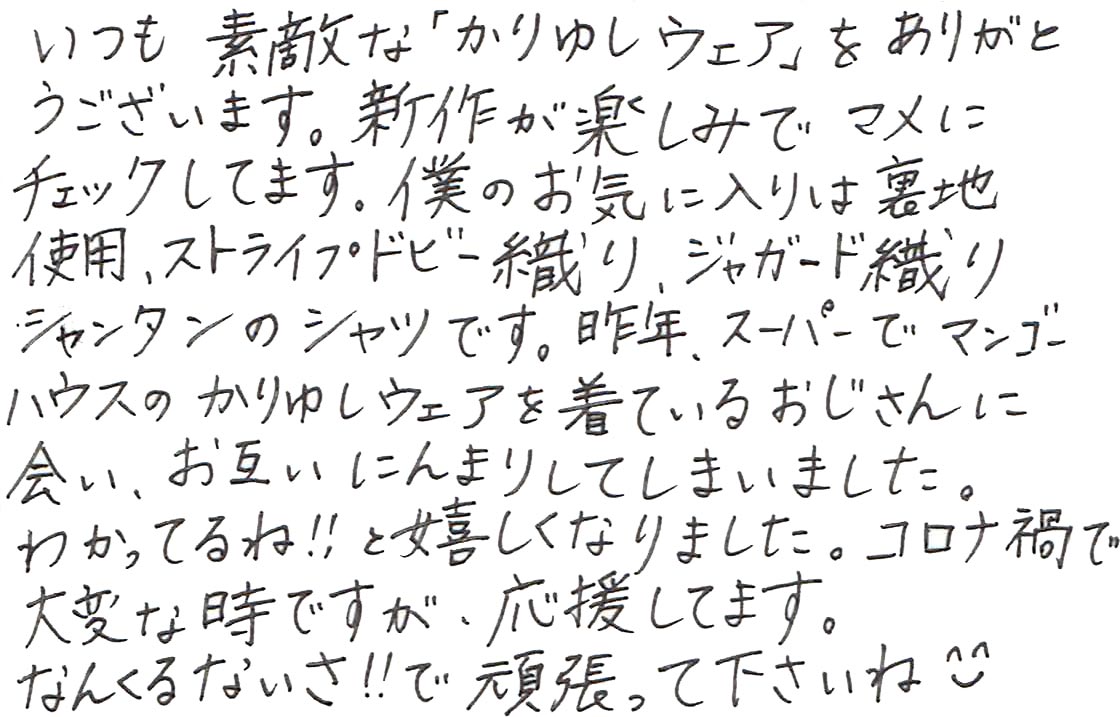 いつも 素敵な「かりゆしウェア」を ありがと
うございます。新作が楽しみで マメに
チェックしてます。僕のお気に入りは裏地
使用、ストライプドビー織り、ジャガード織り
シャンタンのシャツです。昨年、スーパーでマンゴー
ハウスのかりゆしウェアを着ているおじさんに
会い、お互いにんまりしてしまいました。
わかってるね!!と嬉しくなりました。コロナ禍で
大変な時ですが、応援してます。
なんくるないさ!!で頑張って下さいね^^